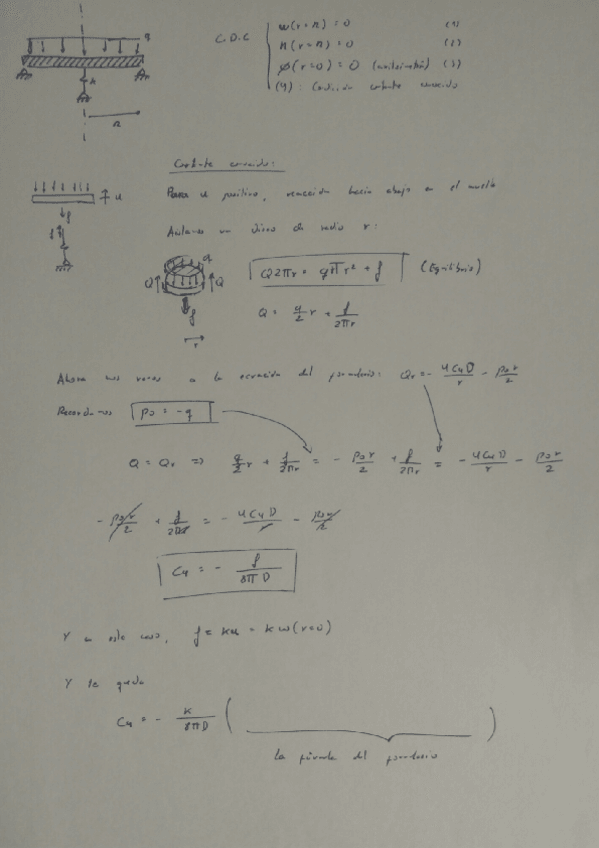 q
k
R
C.D.C
w(r=R) = 0 (1)
M(r=R) = 0 (2)
φ(r=0) = 0 (antisimetría) (3)
(4): Condición cortante conocido
Cortante conocido:
Para u positivo, reacción hacia abajo en el muelle
u
f
Aislamos un disco de radio r:
q
Q Q
f
r
Q2πr = qπr² + f (Equilibrio)
Q = q/2 r + f/2πr
Ahora nos vamos a la ecuación del formulario: Qr = - 4C4D/r - p0r/2
Recordamos p0 = -q
Q = Qr => q/2 r + f/2πr = - p0r/2 + f/2πr = - 4C4D/r - p0r/2
- p0r/2 + f/2πr = - 4C4D/r - p0r/2
C4 = - f/8πD
Y en este caso, f = ku = k w(r=0)
Y te queda
C4 = - k/8πD ( )
la fórmula del formulario